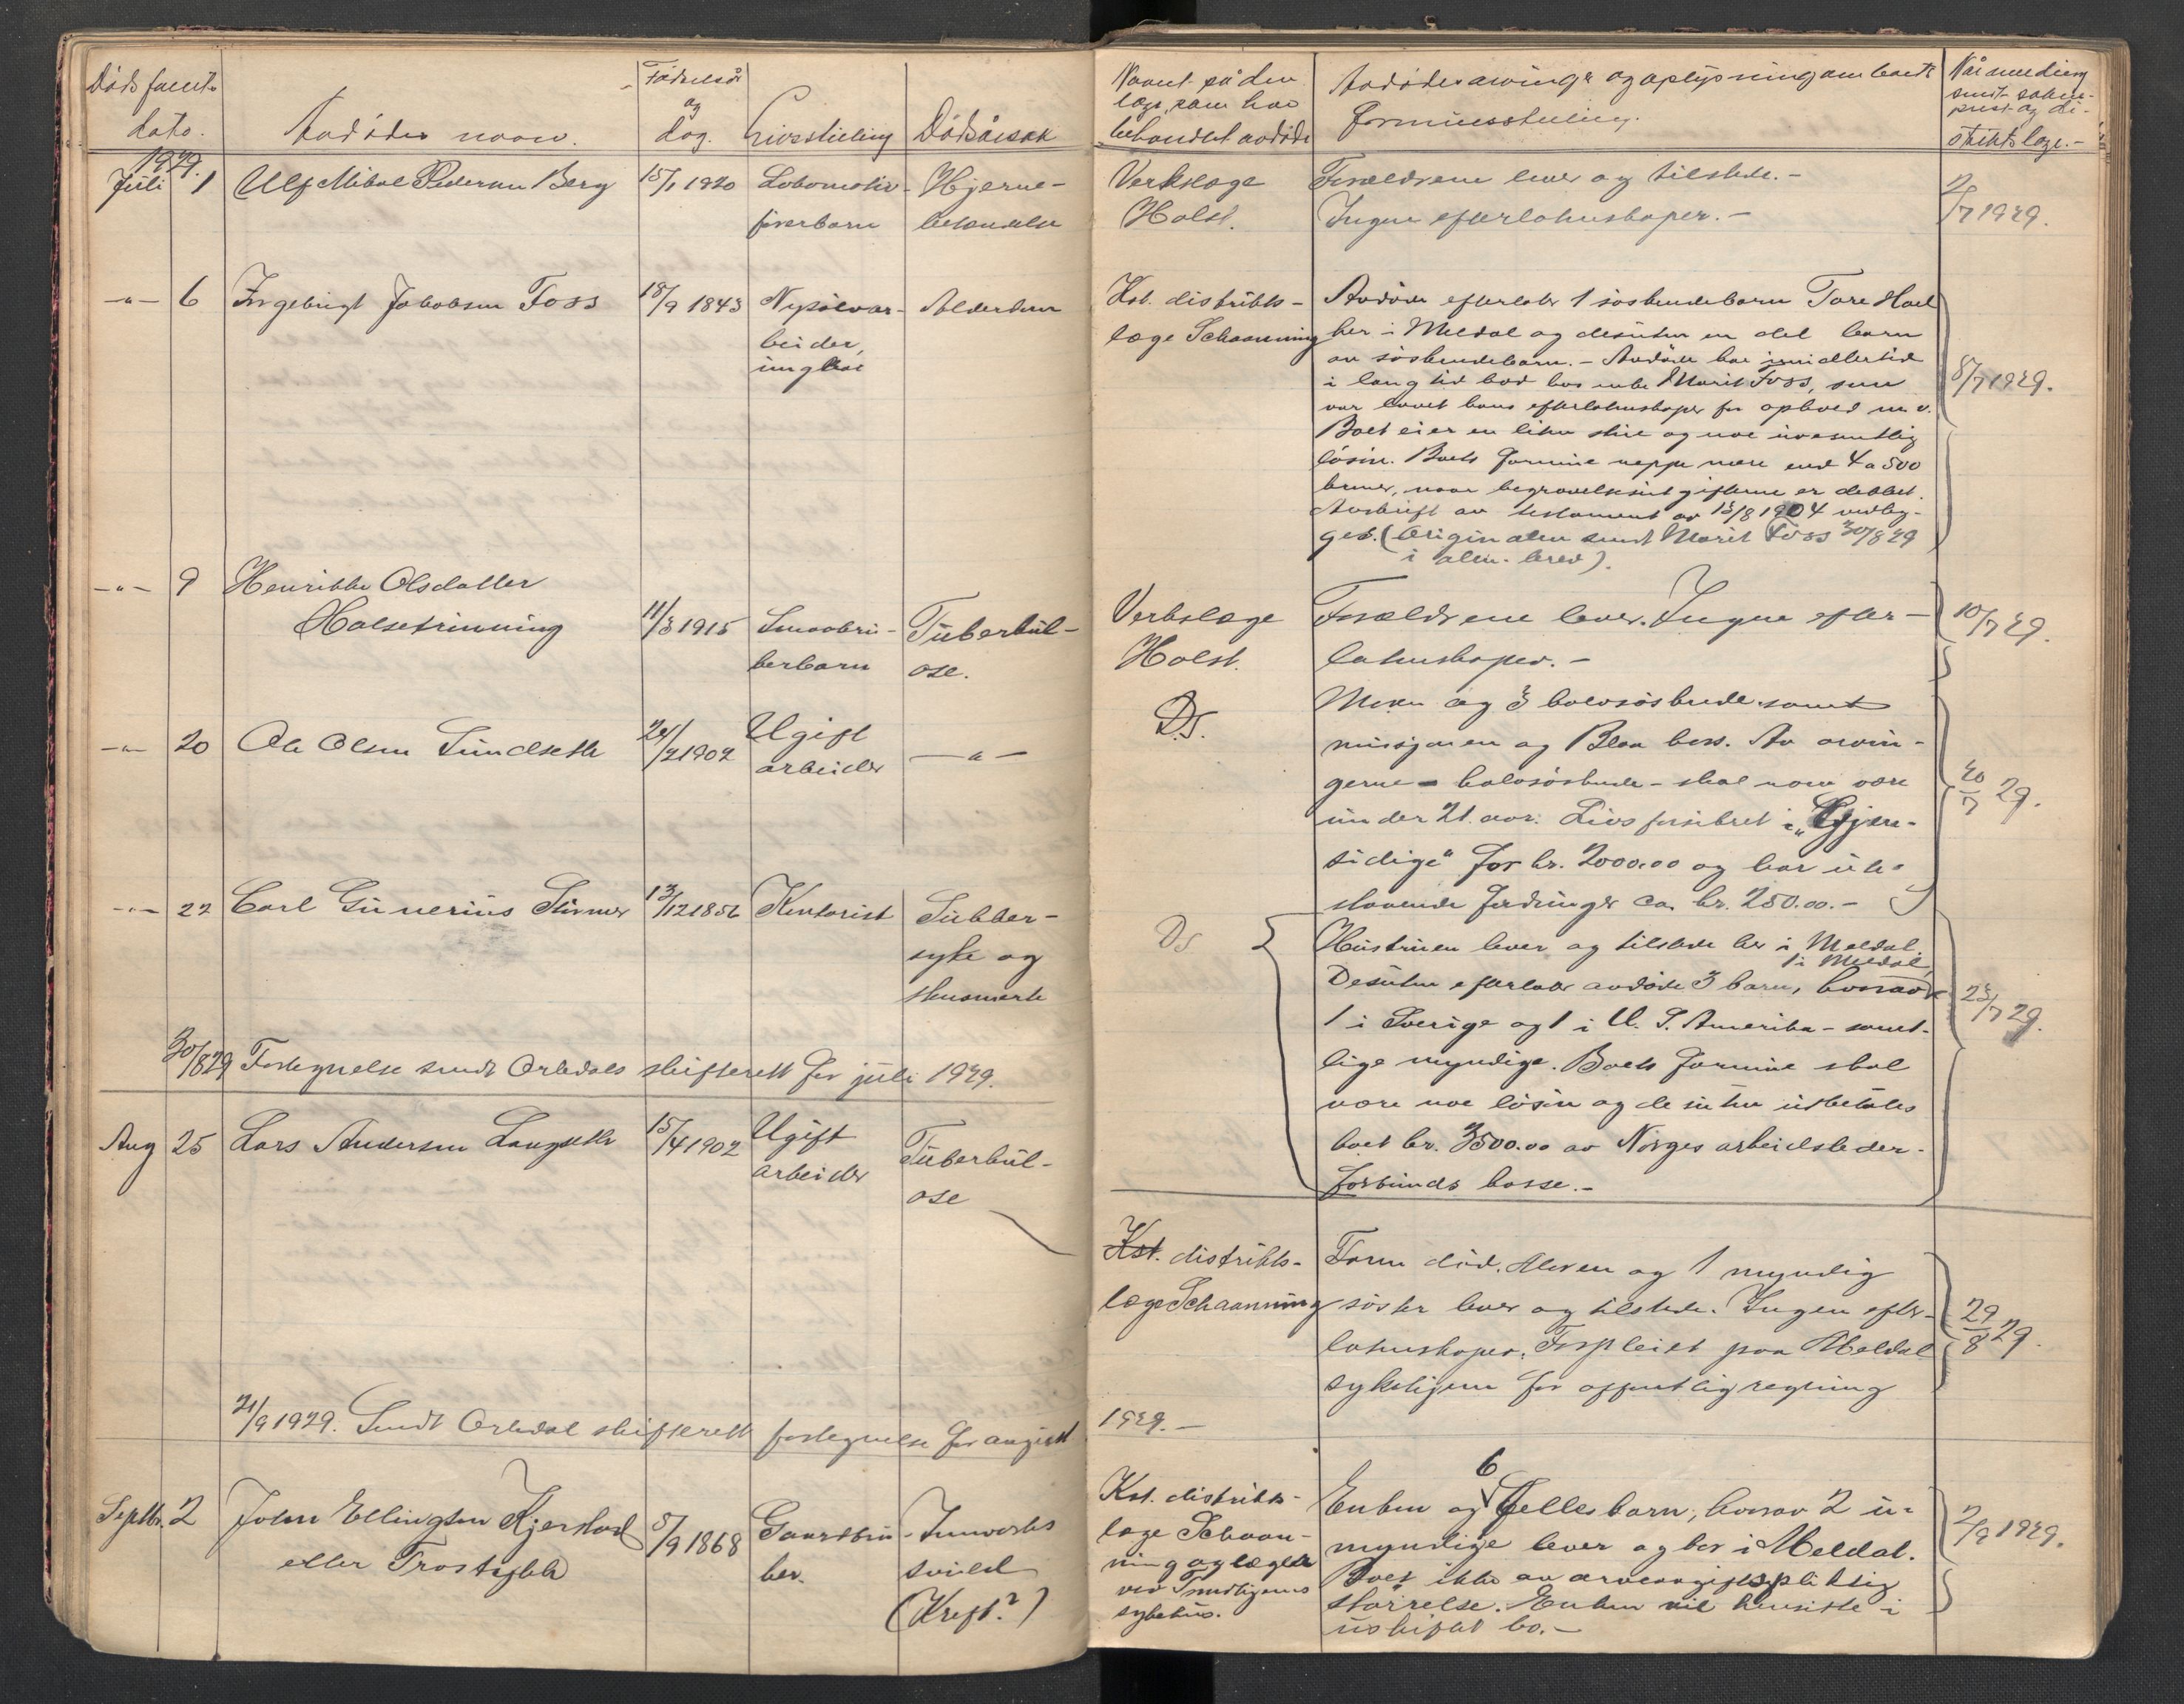 Dødsfaldets
dato.
Avdødes navn.
Fødselsår
og
dag.
Livsstilling
Dødsårsak
Navnet på den
læge, som har
behandlet avdøde
Avdødes arvinger og oplysning om boets
formuesstilling.
Når meddelelse
sendt sokne-
prest og di-
striktslæge.-
1929.
Juli 1 Alf Mikal Pedersen Berg 15/1 1920 Lokomotiv- Hjerne-
førerbarn betændelse
Verkslæge Forældrene lever og tilstede.-
Holst. Ingen efterlatenskaper.-
2/7 1929.
-"- 6 Ingebrigt Jakobsen Foss 18/9 1843 Nysølvar- Alderdom
beider,
ungkar
Kst. distrikts-
læge Schaanning
Avdøde efterlater 1 søskendebarn Tore Hoel
her i Meldal og desuten en del barn
av søskendebarn.- Avdøde har imidlertid
i lang tid bod hos enke Marit Foss, som
var lovet hans efterlatenskaper for ophold m.v.
Boet eier en liten stue og noe uvesentlig
løsøre. Boets formue neppe mere end 4 a 500
kroner, naar begravelsesutgifterne er dekket.
Avskrift av testament av 15/8 1904 vedlæg-
ges. (Originalen sendt Marit Foss 30/8 29
i alm. brev).
8/7 1929.
-"- 9 Henrikke Olsdatter
Holsetrønning 11/3 1915 Smaabru- Tuberkul-
kerbarn ose.
Verkslæge Forældrene lever. Ingen efter-
Holst. latenskaper.-
10/7 29.
-"- 20 Ole Olsen Sundseth 24/2 1902 Ugift
arbeider -"-
Ds.
Moren og 3 halvsøskende samt
og Bloa bor. Av arvin-
gerne - halvsøskende - skal noen være
under 21 aar. Livsforsikret i "Gjen-
sidige" for kr. 2000.00 og har ute-
staaende fordringer ca. kr. 250.00.-
20/7 29.
-"- 22 Carl Gunerius Størmer 13/12 1856 Kontorist Sukker-
syke og
Ds
Hustruen lever og tilstede her i Meldal
Desuten efterlater avdøde 3 barn, hvorav 1 i Meldal,
1 i Sverige og 1 i U. S. Amerika - samt-
lige myndige. Boets formue skal
være noe løsøre og desuten utbetales
boet kr. 3500.00 av Norges arbeidsleder-
forbunds kasse.-
23/7 29.
30/8 29 Fortegnelse sendt Orkdals skifterett for juli 1929.
Aug 25 Lars Andersen Langseth 15/4 1902 Ugift Tuberkul-
arbeider ose
Kst. distrikts-
læge Schaanning
Faren død. Moren og 1 myndig
søster lever og tilstede. Ingen efter-
latenskaper. Forpleiet paa Meldal
sykehjem for offentlig regning
29/8 29.
21/9 1929. Sendt Orkdal skifterett fortegnelse for august 1929.-
Septbr. 2 John Ellingsen Kjerstad 5/9 1868 Gaardbru- Innvortes
eller Trostykk ker. svuld
(Kreft?)
Kst. distrikts-
læge Schaan-
ning og lægene
ved Trondhjems
sykehus.
Enken og 6 fellesbarn, hvorav 2 u-
myndige lever og bor i Meldal.
Boet ikke av arveavgiftspliktig
størrelse. Enken vil hensitte i
uskiftet bo.-
2/9 1929.